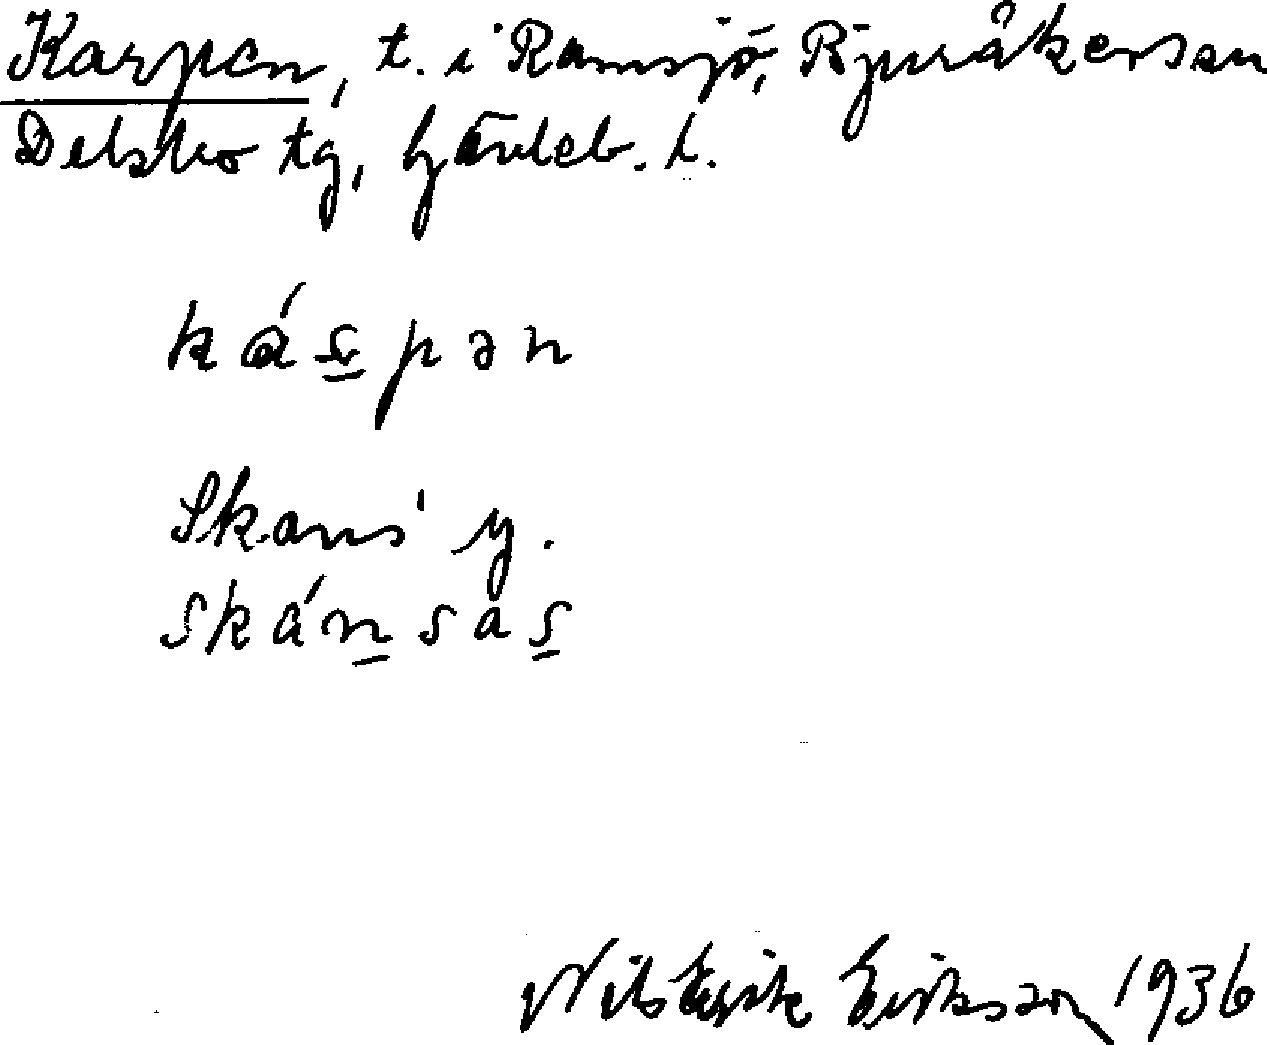 Karpen, t. i Ramsjö, Bjuråkers sn
Delsbo tg, Gävleb. l.
káʂpən
Skans' y.
skánsas
Nils Erik Eriksson 1936